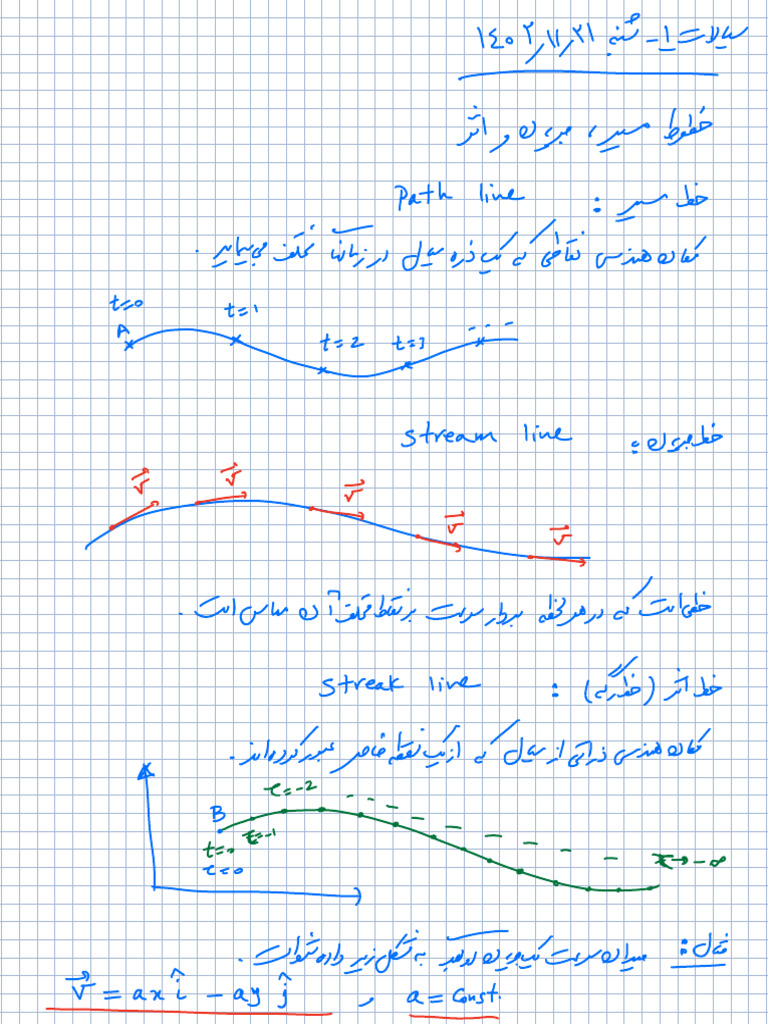 سیالات ۱ - شنبه ۱۴۰۲٫۱۱٫۲۱
خطوط مسیر، جریان و اثر
خط مسیر : Path line
مکان هندسی نقاطی که یک ذره سیال در زمانهای مختلف می‌پیماید .
t=0
A
t=1
t=2
t=3
خط جریان : stream line
V
V
V
V
V
خطی است که در هر لحظه بردار سرعت بر نقاط مختلف آن مماس است .
خط اثر (خط رگه) : streak line
مکان هندسی ذراتی از سیال که از یک نقطه خاص عبور کرده‌اند .
τ=-2
B
τ=-1
t=0
τ=0
τ→-∞
مثال : میدان سرعت یک جریان به شکل زیر داده شده است .
V = axî - ayĵ , a = Const.